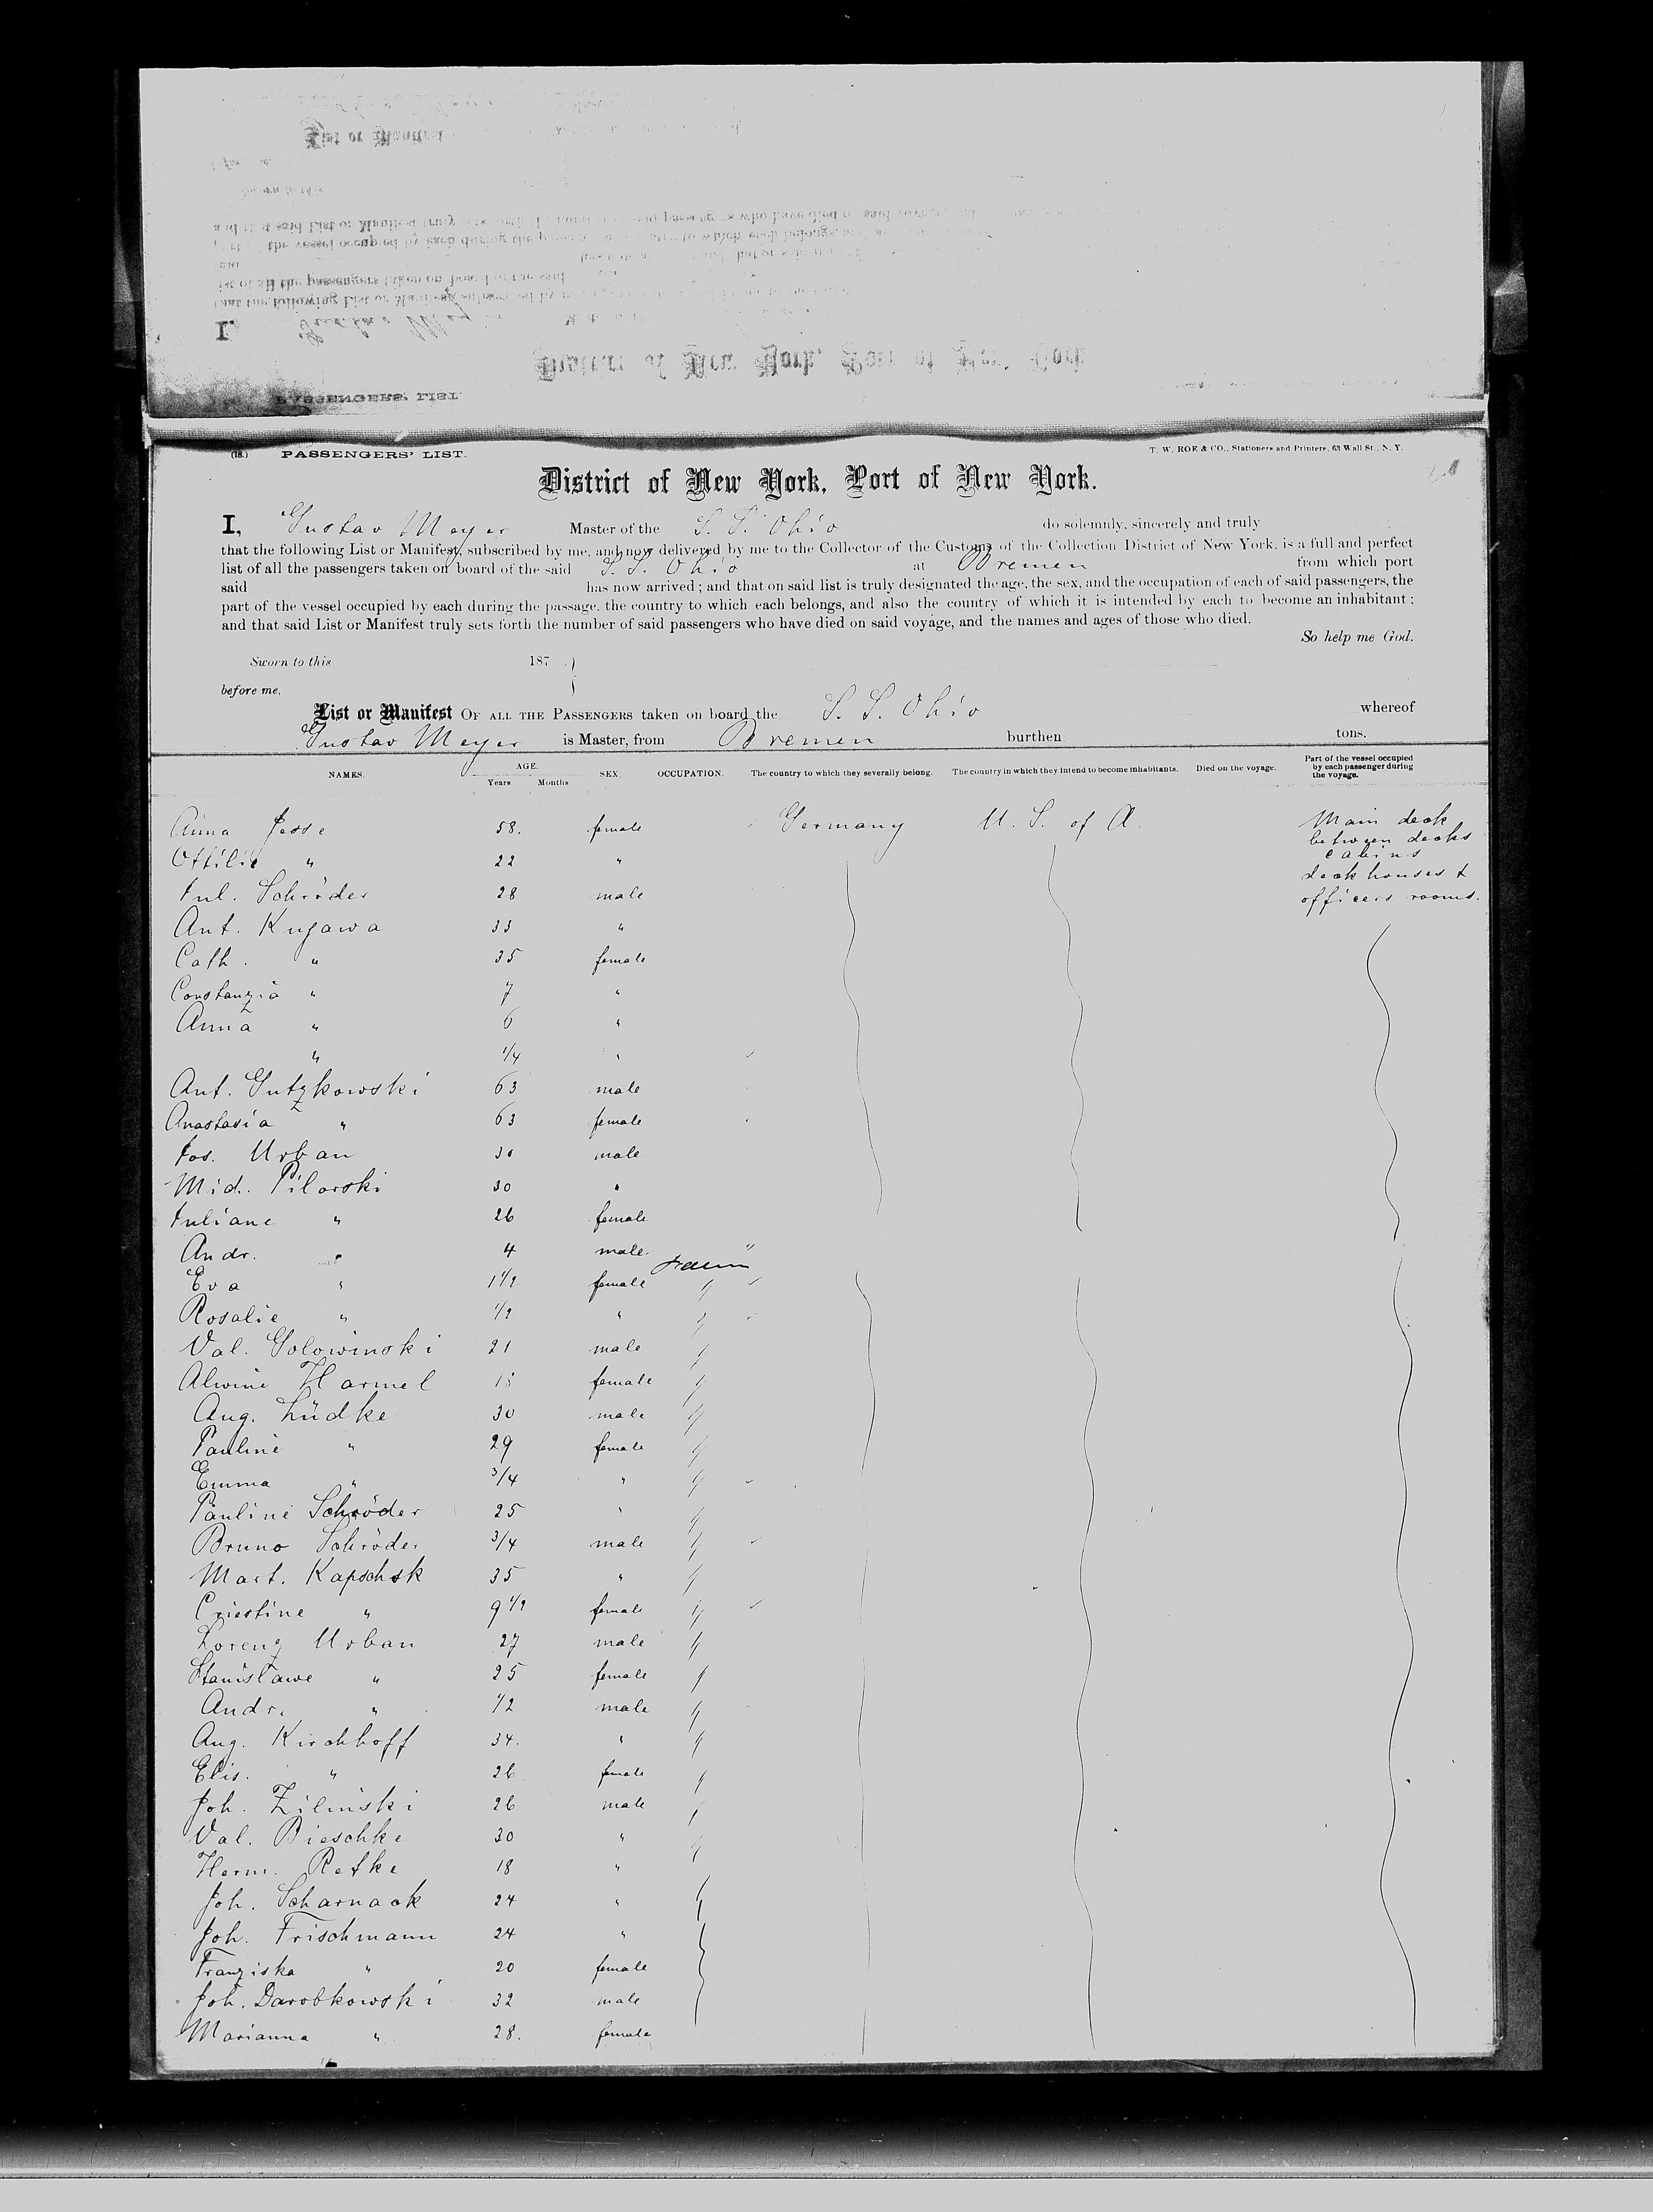 (18.) PASSENGERS' LIST. T. W. ROE & CO., Stationers and Printers, 63 Wall St., N. Y.
District of New York, Port of New York.
I, Gustav Meyer Master of the S. S. Ohio do solemnly, sincerely and truly
that the following List or Manifest, subscribed by me, and now delivered by me to the Collector of the Customs of the Collection District of New York, is a full and perfect
list of all the passengers taken on board of the said S. S. Ohio at Bremen from which port
said has now arrived; and that on said list is truly designated the age, the sex, and the occupation of each of said passengers, the
part of the vessel occupied by each during the passage, the country to which each belongs, and also the country of which it is intended by each to become an inhabitant;
and that said List or Manifest truly sets forth the number of said passengers who have died on said voyage, and the names and ages of those who died.
So help me God.
Sworn to this 187
before me,
List or Manifest OF ALL THE PASSENGERS taken on board the S. S. Ohio whereof
Gustav Meyer is Master, from Bremen burthen tons.
NAMES. AGE. Years Months SEX. OCCUPATION. The country to which they severally belong. The country in which they intend to become inhabitants. Died on the voyage. Part of the vessel occupied by each passenger during the voyage.
Anna Jesse 58. female Germany U. S. of A. Main deck
between decks
Ottilie " 22 " cabins
deck houses &
Jul. Schröder 28 male officers rooms.
Ant. Kujawa 33 "
Cath. " 35 female
Constanzia " 7 "
Anna " 6 "
" 1/4 "
Ant. Gutzkowski 63 male
Anastasia " 63 female
Jos. Urban 30 male
Mich. Pilarski 30 "
Juliane " 26 female
Andr. " 4 male
Eva " 1 1/2 female "
Rosalie " 1/2 " "
Val. Golowinski 21 male "
Alwine Harmel 18 female "
Aug. Lüdke 30 male "
Pauline " 29 female "
Emma " 3/4 " "
Pauline Schröder 25 " "
Bruno Schröder 3/4 male "
Mart. Kapschsk 35 " "
Criestine " 9 1/2 female "
Lorenz Urban 27 male "
Stanislawe " 25 female "
Andr. " 1/2 male "
Aug. Kirchhoff 34. " "
Elis. " 26 female "
Joh. Zilinski 26 male "
Val. Bieschke 30 " "
Herm. Retke 18 "
Joh. Scharnack 24 "
Joh. Frischmann 24 "
Franziska " 20 female
Joh. Darobkowski 32 male
Marianna " 28. female